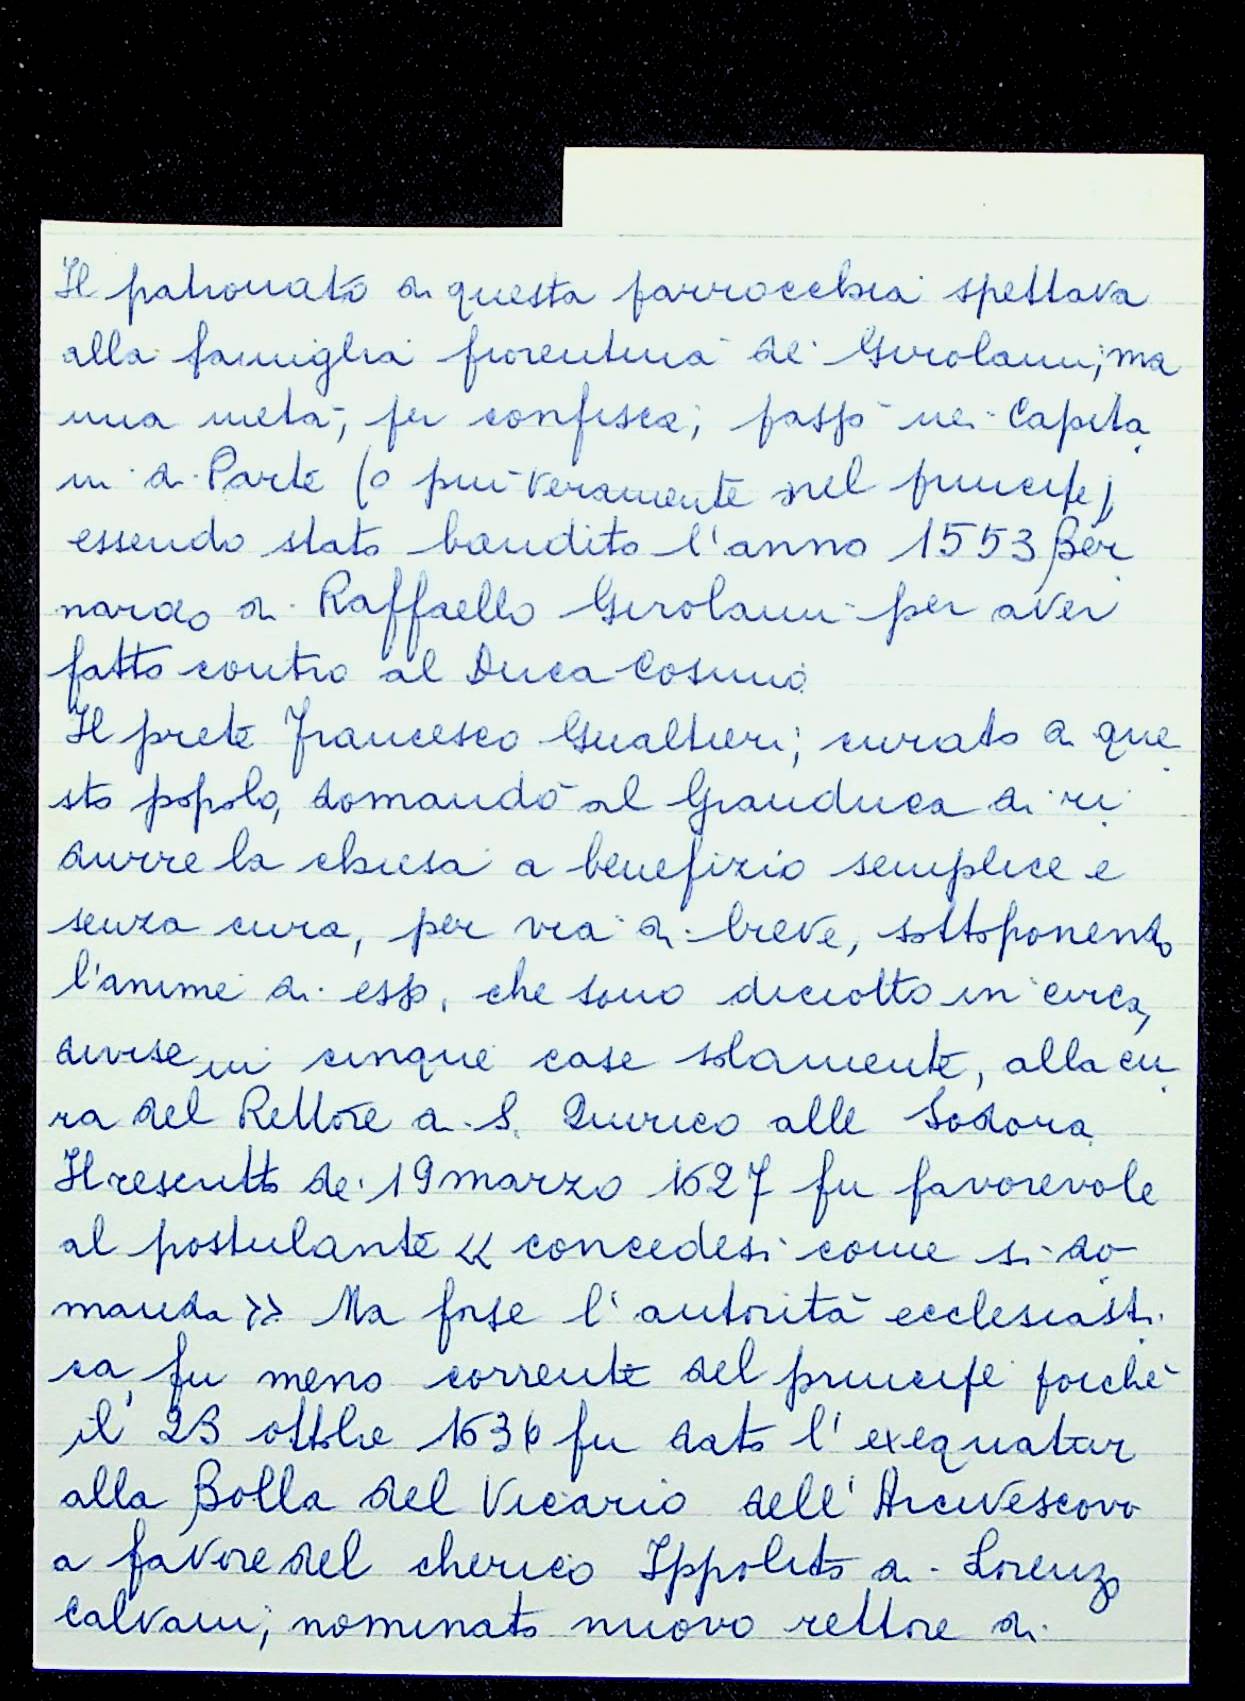 Il patronato di questa parrocchia spettava
alla famiglia fiorentina de' Girolami, ma
una metà, per confisca, passò nei Capita
ni di Parte (o più veramente nel principe)
essendo stato bandito l'anno 1553 Ber
nardo di Raffaello Girolami per aver
fatto contro al Duca Cosimo
Il prete Francesco Gualtieri, curato di que
sto popolo, domandò al Granduca di ri
durre la chiesa a benefizio semplice e
senza cura, per via di breve, sottoponendo
l'anime di essa, che sono diciotto in circa,
divise in cinque case solamente, alla cu
ra del Rettore di S. Quirico alle Sodora
Il rescritto de' 19 marzo 1627 fu favorevole
al postulante « concedesi come si do
manda » Ma forse l'autorità ecclesiasti
ca, fu meno corrente del principe poichè
il 23 ottobre 1636 fu dato l'exequatur
alla Bolla del Vicario dell'Arcivescovo
a favore del cherico Ippolito di Lorenzo
Calvani, nominato nuovo rettore di